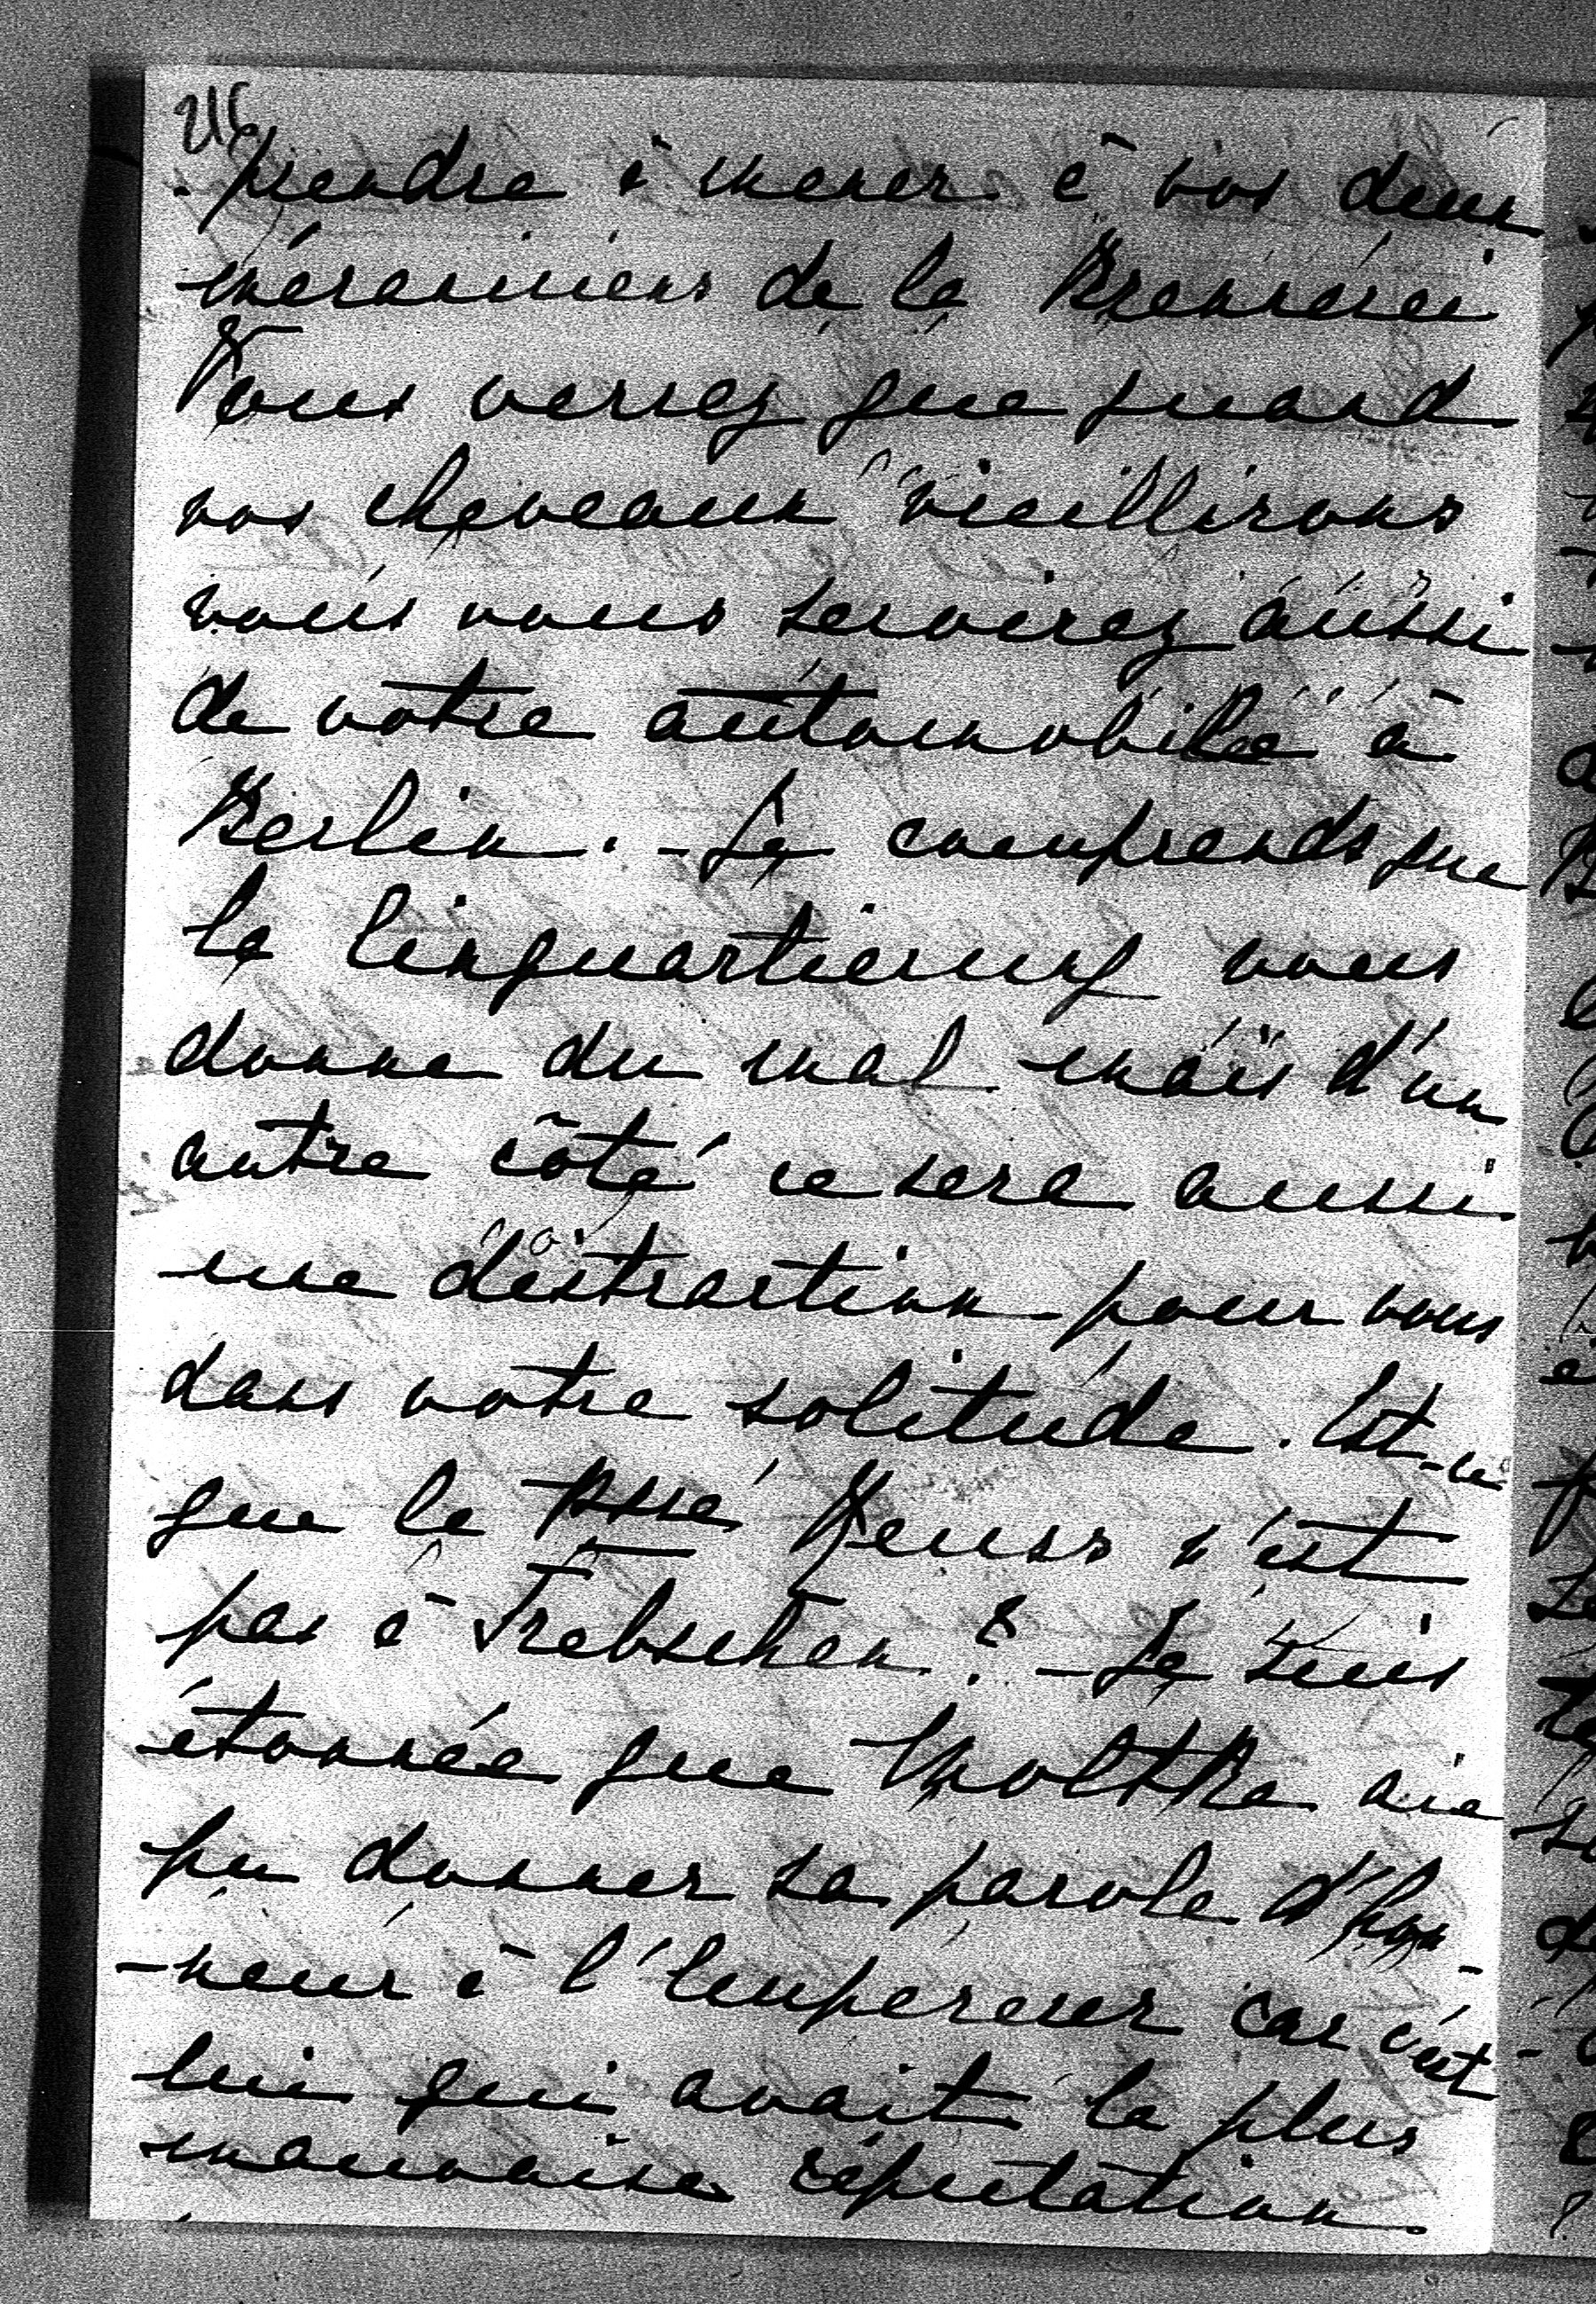 216
prendre à mener à vos deux
mécaniciens de la Brennerei
Vous verrez que quand
vos cheveaux vieillirons
vous vous servirez aussi
de votre automobile à
Berlin. - Je comprends que
le linquartierung vous
donne du mal mais d'un
autre côté ce sera aussi
une distraction pour vous
dans votre solitude. Est-ce
que la Psse Reuss n'est
pas à Trebschen? - Je suis
étonnée que Moltke aie
pu donner sa parole d'hon-
-neur à l'Empereur car c'est
lui qui avait la plus
mauvaise réputation.